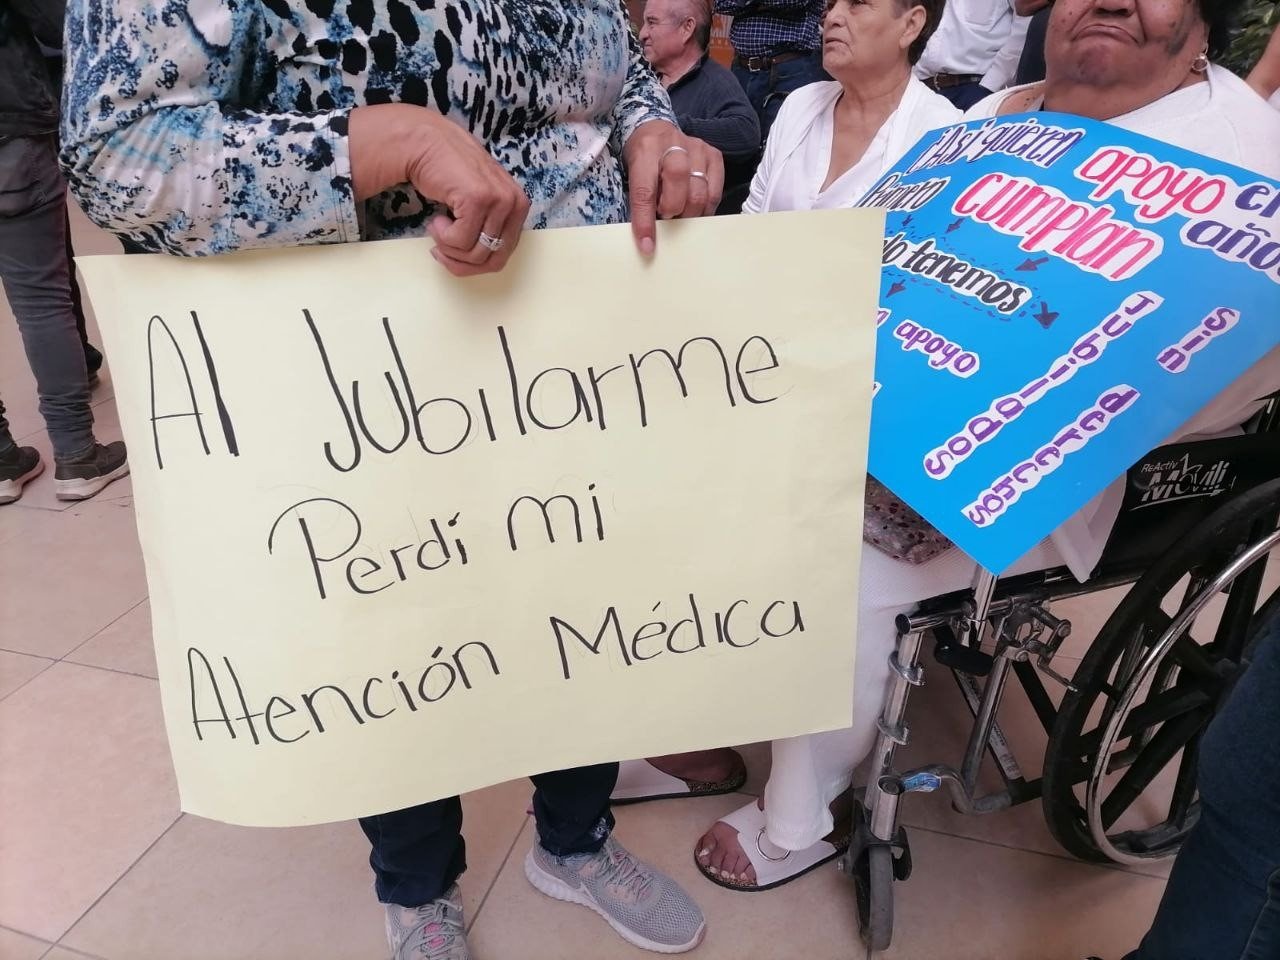 Al Jubilarme
Perdí mi
Atención Médica
¡Así quieren apoyo el
Primero cumplan año
lo tenemos
apoyo
Jubilados
Sin derechos
ReActiv
Móvili